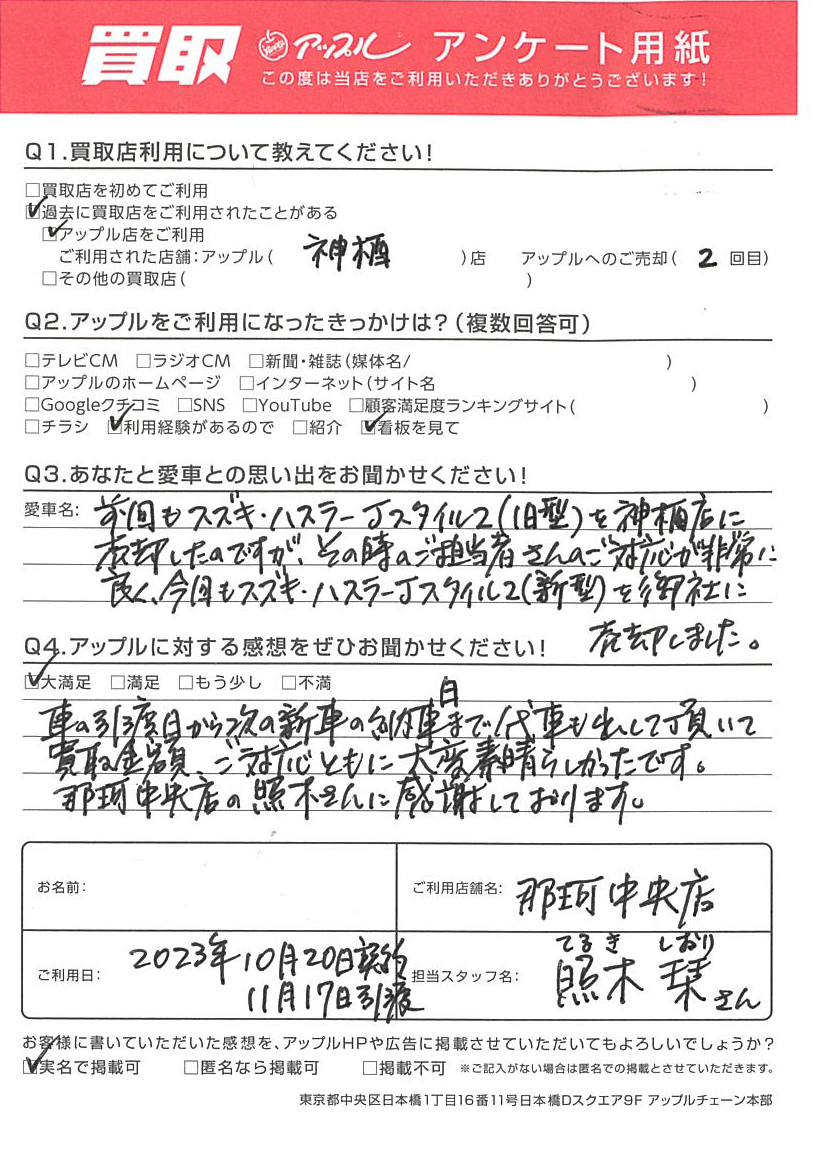 買取 アップル アンケート用紙
この度は当店をご利用いただきありがとうございます!
Q1.買取店利用について教えてください!
□買取店を初めてご利用
☑過去に買取店をご利用されたことがある
☑アップル店をご利用
ご利用された店舗:アップル( 神栖 )店 アップルへのご売却( 2 回目)
□その他の買取店( )
Q2.アップルをご利用になったきっかけは?(複数回答可)
□テレビCM □ラジオCM □新聞・雑誌(媒体名/ )
□アップルのホームページ □インターネット(サイト名 )
□Googleクチコミ □SNS □YouTube □顧客満足度ランキングサイト( )
□チラシ ☑利用経験があるので □紹介 ☑看板を見て
Q3.あなたと愛車との思い出をお聞かせください!
愛車名: 前回もスズキ・ハスラーJスタイル2(旧型)を神栖店に
売却したのですが、その時のご担当者さんのご対応が非常に
良く、今回もスズキ・ハスラーJスタイル2(新型)を御社に
売却しました。
Q4.アップルに対する感想をぜひお聞かせください!
☑大満足 □満足 □もう少し □不満
車の引渡日から次の新車の納車日まで代車も出して頂いて
買取金額、ご対応ともに大変素晴らしかったです。
那珂中央店の照木さんに感謝しております。
お名前:
ご利用店舗名: 那珂中央店
ご利用日: 2023年10月20日契約
11月17日引渡
てるき しおり
担当スタッフ名: 照木 栞さん
お客様に書いていただいた感想を、アップルHPや広告に掲載させていただいてもよろしいでしょうか?
☑実名で掲載可 □匿名なら掲載可 □掲載不可 ※ご記入がない場合は匿名での掲載とさせていただきます。
東京都中央区日本橋1丁目16番11号日本橋Dスクエア9F アップルチェーン本部